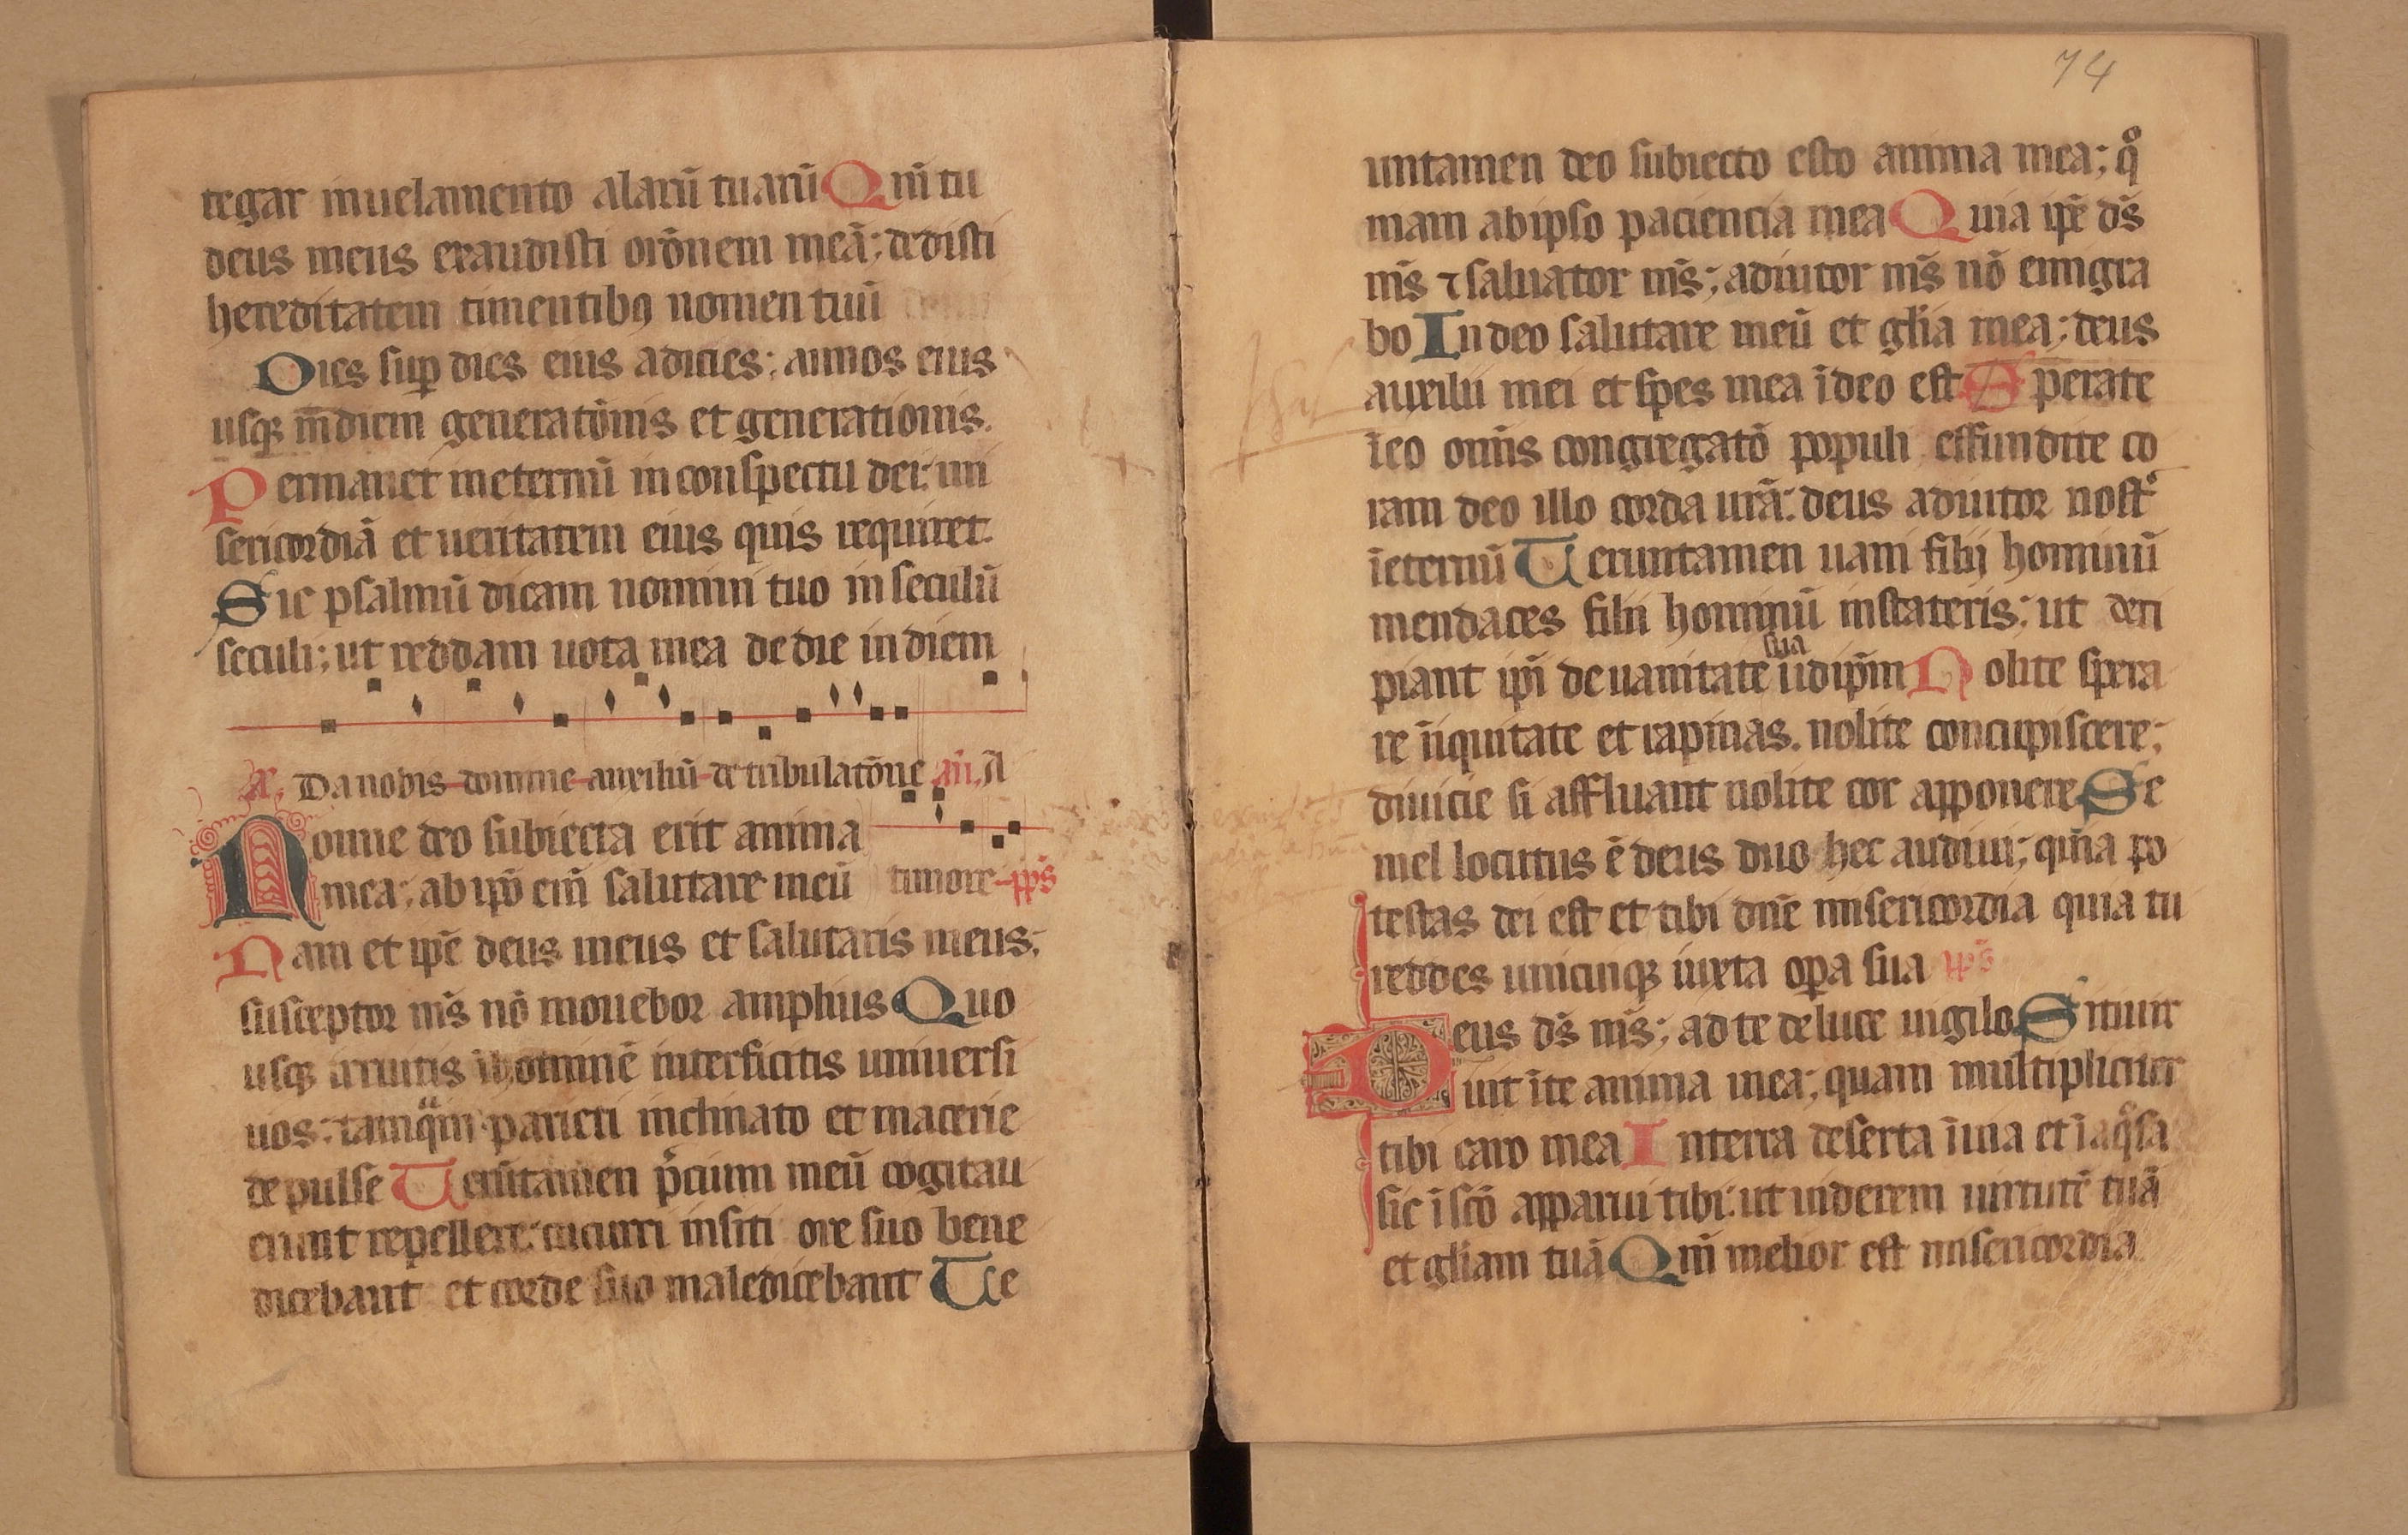 tegar inuelamento alarū tuarū Qm̄ tu
deus meus exaudisti orōnem meā; dedisti
hereditatem timentibꝯ nomen tuū
Dies sup dies eius adicies; annos eius
usqꝫ indiem generatōnis et generationis.
Permanet ineternū in conspectu dei; mi
sericordiā et ueritatem eius quis requiret.
Sic psalmū dicam nomini tuo in seculū
seculi; ut reddam uota mea de die in diem
Da nobis domine auxiliū de tribulatōne an̄. A
Nonne deo subiecta erit anima
mea; ab ip̄o em̄ salutare meū timore pp̄s
Nam et ip̄e deus meus et salutaris meus;
susceptor m̄s nō mouebor amplius Quo
usqꝫ irruitis ī hominē interficitis uniuersi
uos; tamqͣm parieti inclinato et macerie
depulse Uerūtamen p̄cium meū cogitau
erunt repellere; cucurri insiti ore suo bene
dicebant et corde suo maledicebant Ue
74
runtamen deo subiecto esto anima mea; qͦ
niam abipso paciencia mea Quia ip̄e ds̄
m̄s ⁊ saluator m̄s; adiutor m̄s nō emigra
bo In deo salutare meū et glīa mea; deus
auxilii mei et spes mea ī deo est Sperate
ī eo om̄is congregatō populi effundite co
ram deo illo corda ur̄a; deus adiutor nostͦ
ī eternū Ueruntamen uani filij hominū
mendaces filii hominū instateris; ut deci
piant ip̄i de uanitate sua īidip̄m Nolite spera
re īiquitate et rapinas. nolite concupiscere;
diuicie si affluant nolite cor apponere Se
mel locutus ē deus duo hec audiui; qm̄a po
testas dei est et tibi dn̄e misericordia quia tu
reddes unicuiqꝫ iuxta opa sua ps̄
Deus ds̄ m̄s; ad te de luce uigilo Sitiuit
iuit ī te anima mea; quam multipliciter
tibi caro mea In terra deserta ī uia et ī aqͦsa
sic ī scō apparui tibi; ut uiderem uirtutē tuā
et glīam tuā Qm̄ melior est misericordia